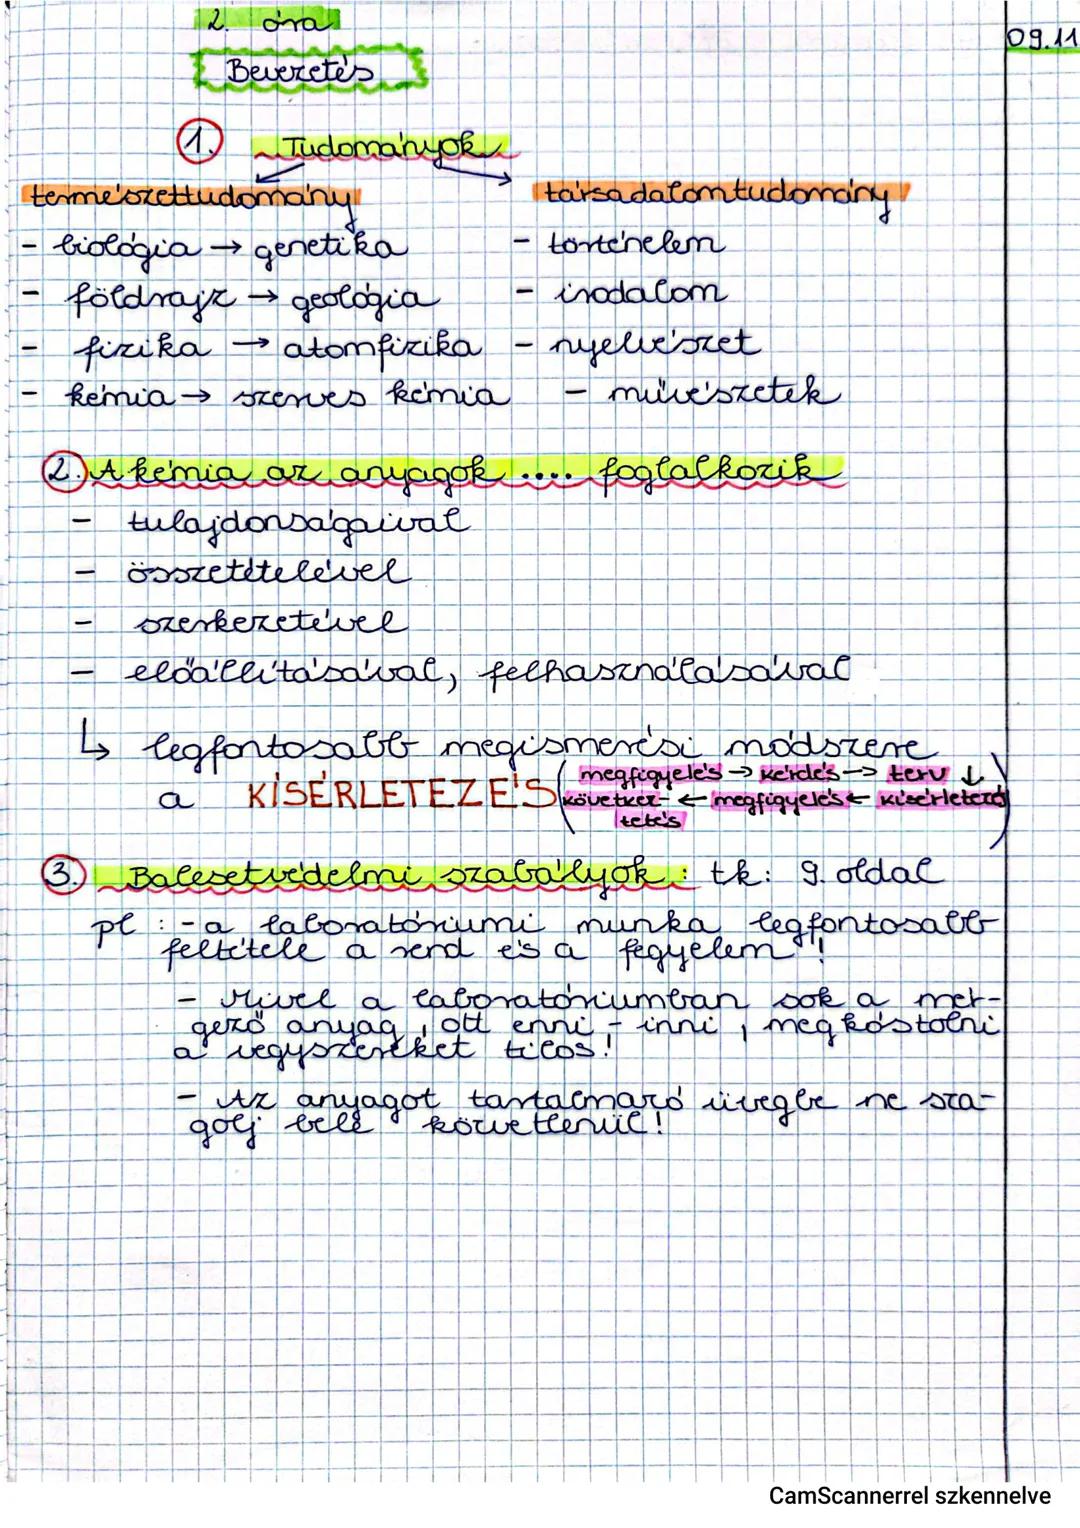 2. óra
09.11
Bevezetés
1. Tudományok
természettudomány
társadalomtudomány
- biológia → genetika
- történelem
- földrajz → geológia
- irodalom
- fizika → atomfizika
- nyelvészet
- kémia → szerves kémia
- művészetek
2. A kémia az anyagok .... foglalkozik
- tulajdonságaival
- összetételével
- szerkezetével
- előállításával, felhasználásával
↳ legfontosabb megismerési módszere
a KÍSÉRLETEZÉS
(megfigyelés → kérdés → terv ↓
következ- ← megfigyelés ← kísérletező)
tetés
3. Balesetvédelmi szabályok: tk: 9. oldal
pl: - a laboratóriumi munka legfontosabb
feltétele a rend és a fegyelem!
- Mivel a laboratóriumban sok a mér-
gező anyag, ott enni - inni, megkóstolni
a vegyszereket tilos!
- Az anyagot tartalmazó üvegbe ne sza-
golj bele közvetlenül!
CamScannerrel szkennelve